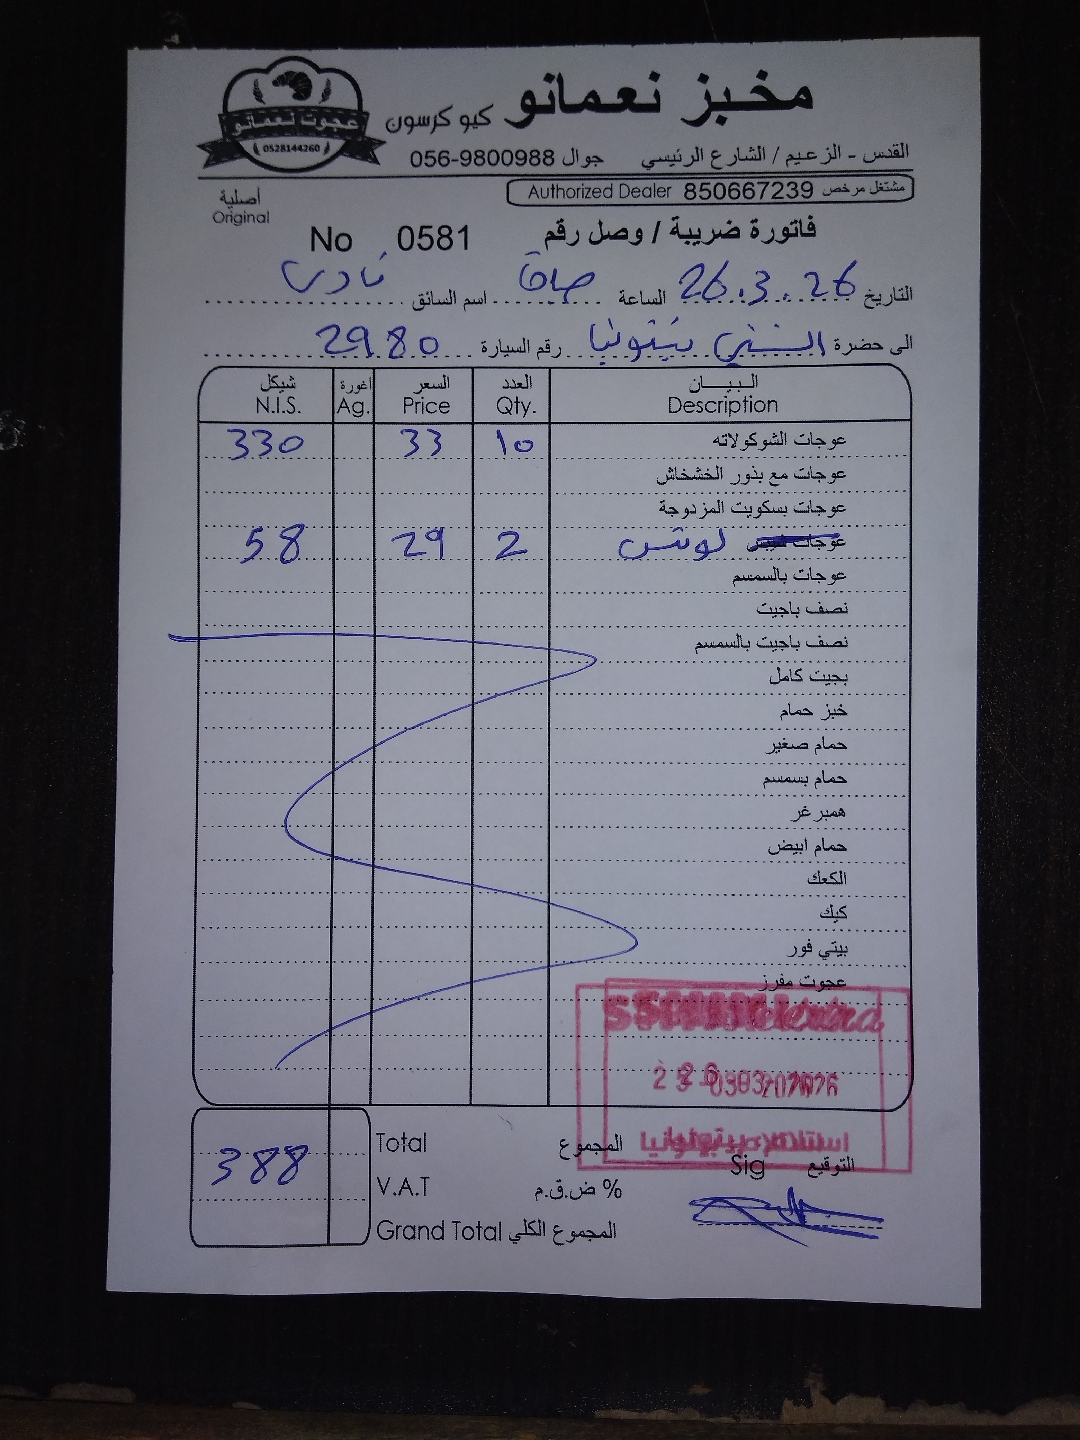 مخبز نعمانو كيو كرسون
عجوت نعمانو
0528144260
القدس - الزعيم / الشارع الرئيسي جوال 056-9800988
مشتغل مرخص 850667239 Authorized Dealer
أصلية
Original
فاتورة ضريبة / وصل رقم No 0581
التاريخ 26.3.26 الساعة اسم السائق
الى حضرة السني بيتونيا رقم السيارة 2980
البيـــان العدد السعر اغورة شيكل
Description Qty. Price Ag. N.I.S.
عوجات الشوكولاته 10 33 330
عوجات مع بذور الخشخاش
عوجات بسكويت المزدوجة
عوجات لوتس 2 29 58
عوجات بالسمسم
نصف باجيت
نصف باجيت بالسمسم
بجيت كامل
خبز حمام
حمام صغير
حمام بسمسم
همبرغر
حمام ابيض
الكعك
كيك
بيتي فور
عجوت مفرز
المجموع Total 388
% ض.ق.م V.A.T
المجموع الكلي Grand Total
التوقيع Sig